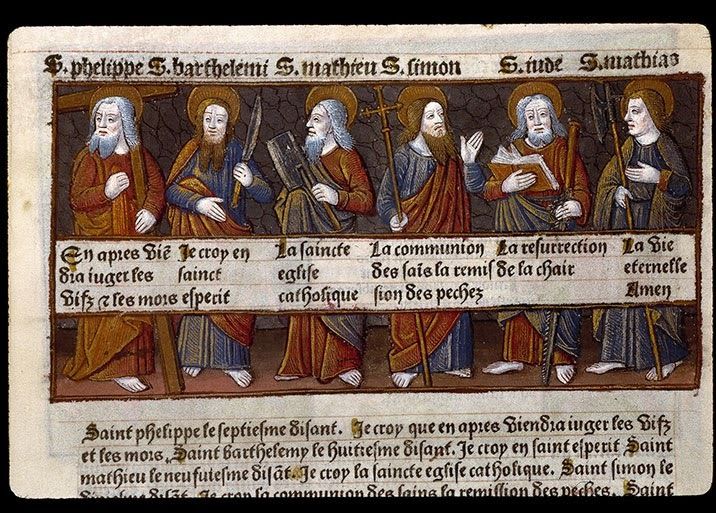 S. phelippe S. barthelemi S. mathieu S. simon S. iude S. mathias
En apres viē
dra iuger les
vifz & les mors
Je croy en
sainct
esperit
La saincte
eglise
catholique
La communion
des saīs la remis
sion des pechez
La resurrection
de la chair
La vie
eternelle
Amen
Saint phelippe le septiesme disant. Je croy que en apres viendra iuger les vifz
et les mors. Saint barthelemy le huitiesme disant. Je croy en saint esperit Saint
mathieu le neufuiesme disāt. Je croy la saincte eglise catholique. Saint simon le
disāt. Je croy la communion des sains la remission des peches. Saint